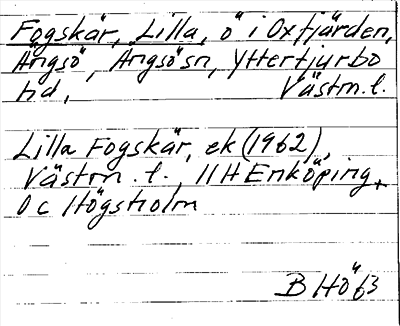 Fogskär, Lilla, ö i Oxfjärden,
Ängsö, Ängsösn, Yttertjurbo
hd, Västm. l.
Lilla Fogskär, ek (1962),
Västm. l. 11H Enköping,
0c Högsholm
B Hö 63